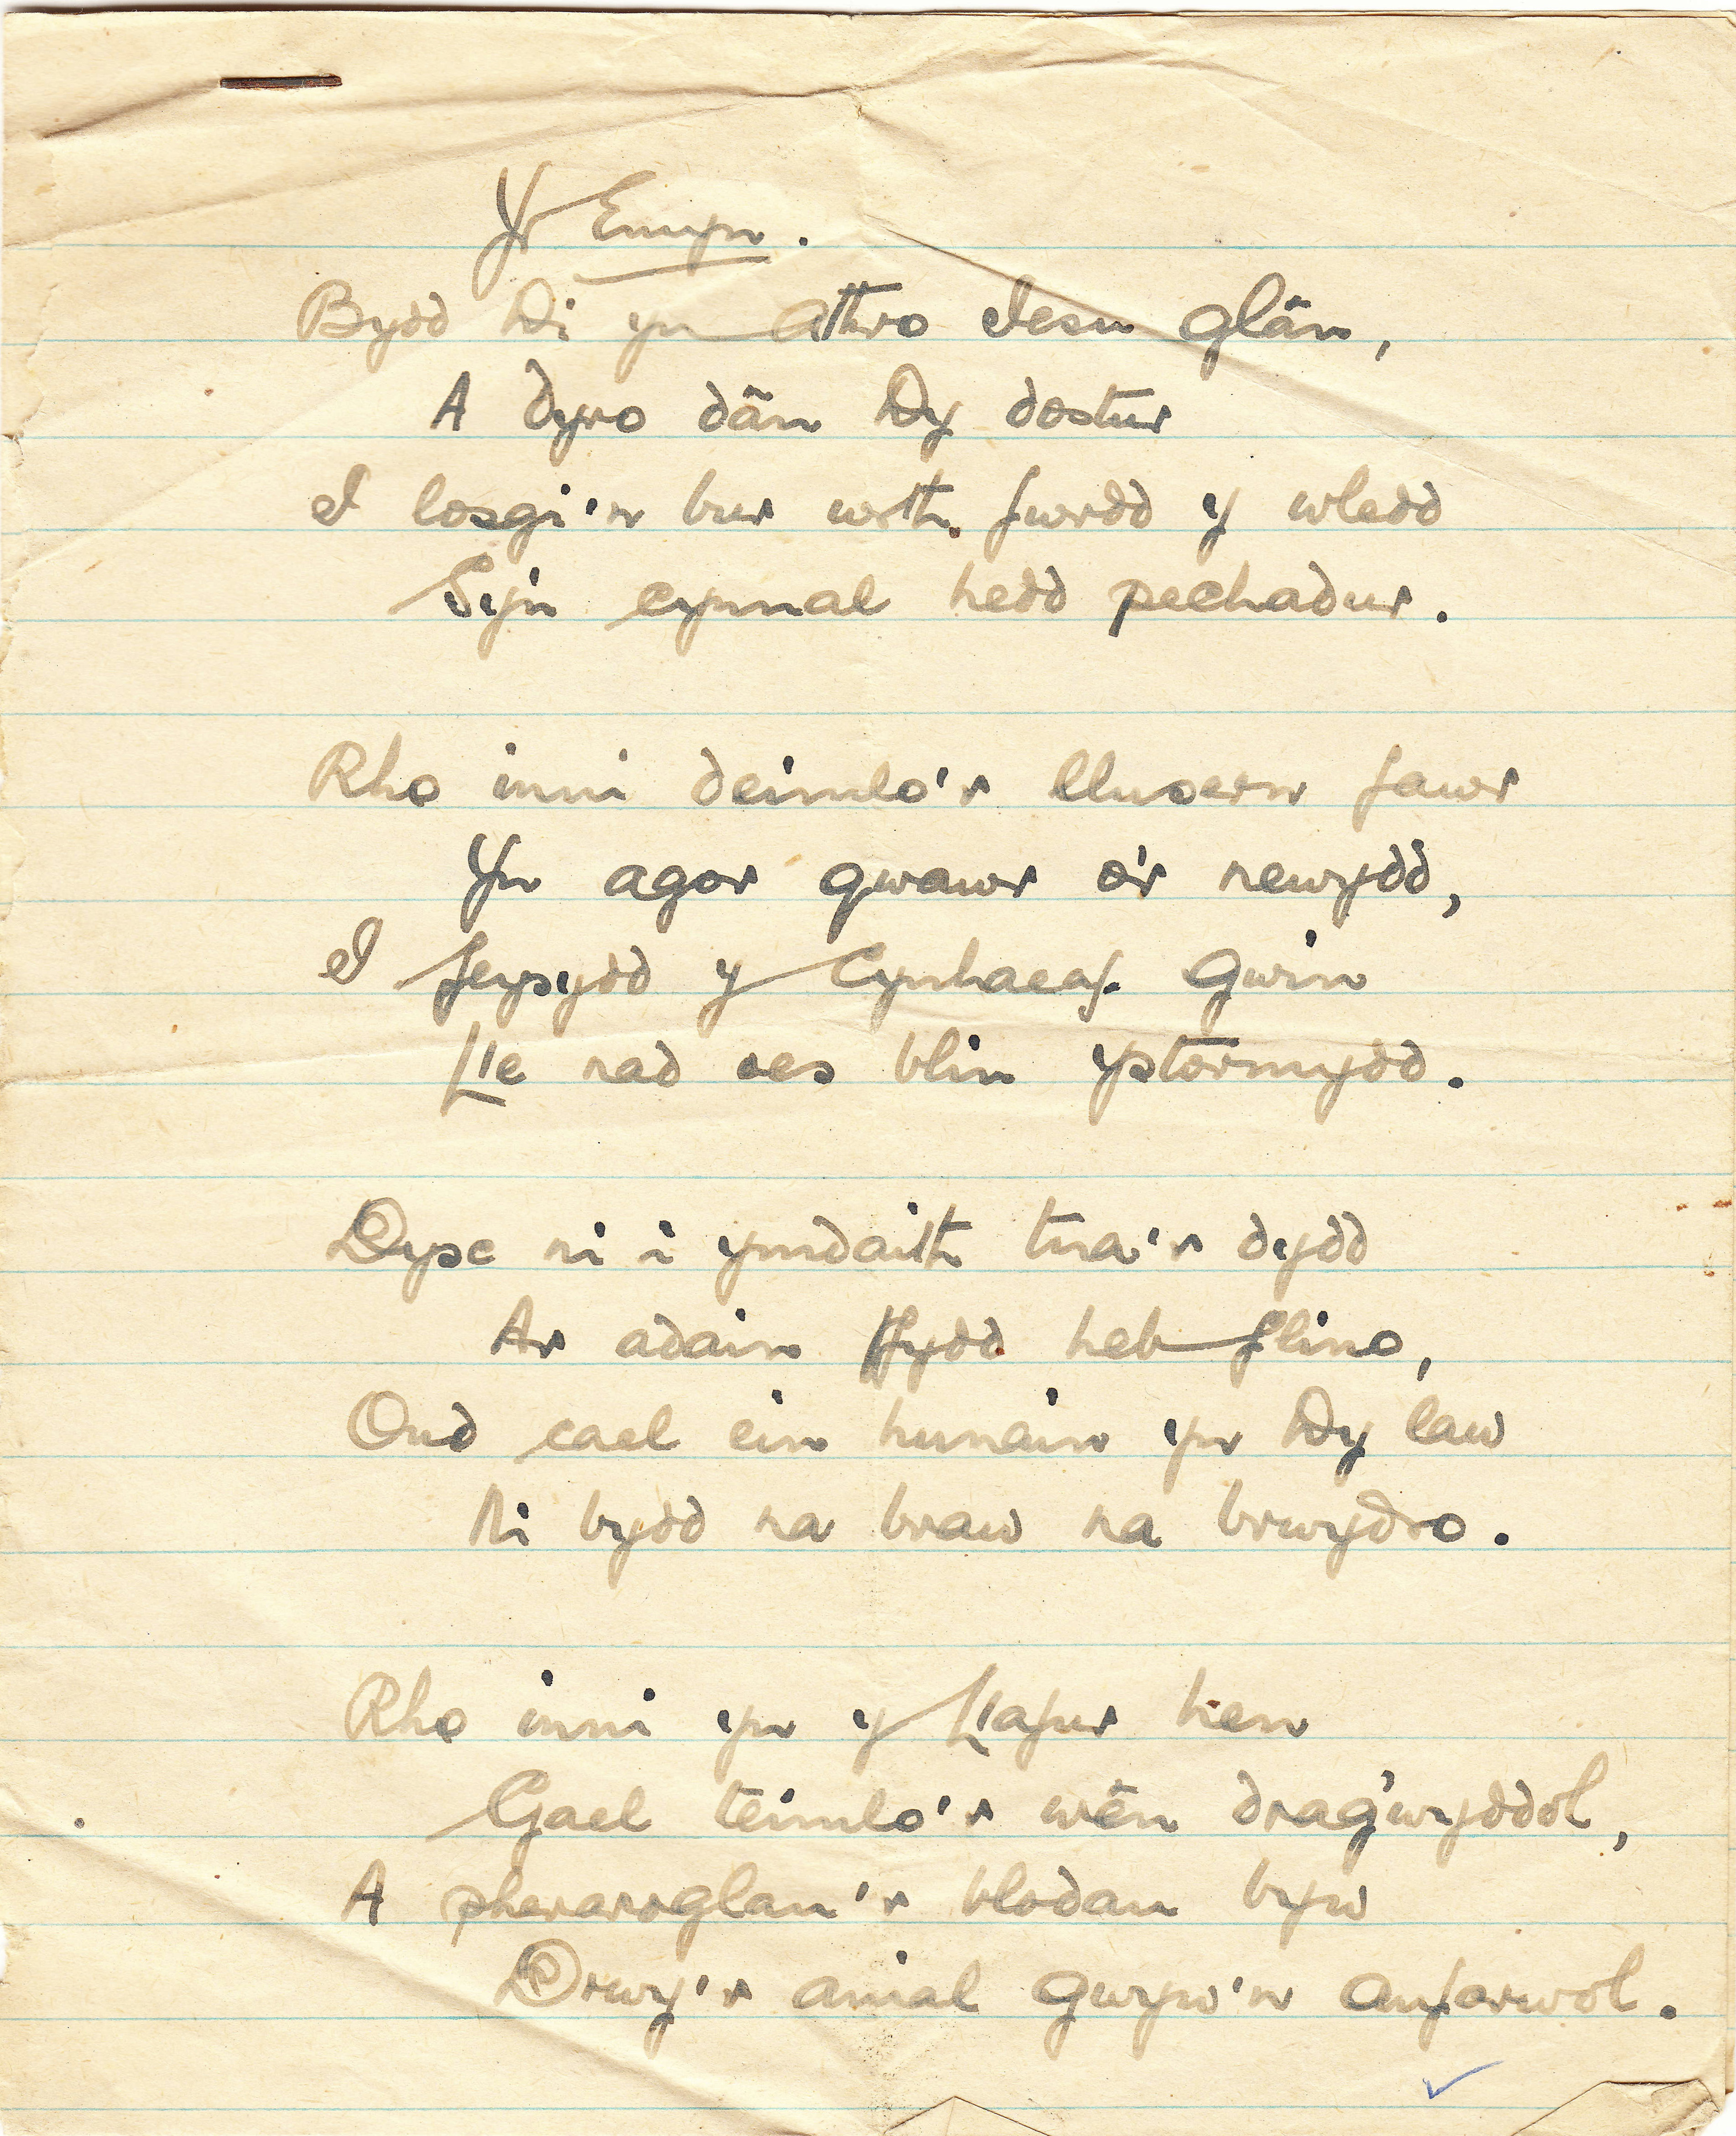 Yr Emyn.
Bydd Di yn Athro Iesu glân,
A dyro dân Dy dostur
I losgi'n bur wrth fwrdd y wledd
Sy'n cynnal hedd pechadur.
Rho inni deimlo'r llusern fawr
Yn agor gwawr o'r newydd,
I feysydd y Cynhaeaf Gwin
Lle nad oes blin ystormydd.
Dysc ni i ymdaith tua'r dydd
Ar adain ffydd heb flino,
Ond cael ein hunain yn Dy law
Ni bydd na braw na brwydro.
Rho inni yn y Llafur hen
Gael teimlo'r wên dragwyddol,
A pheraroglau'r blodau byw
Drwy'r anial gwyw'n anfarwol.